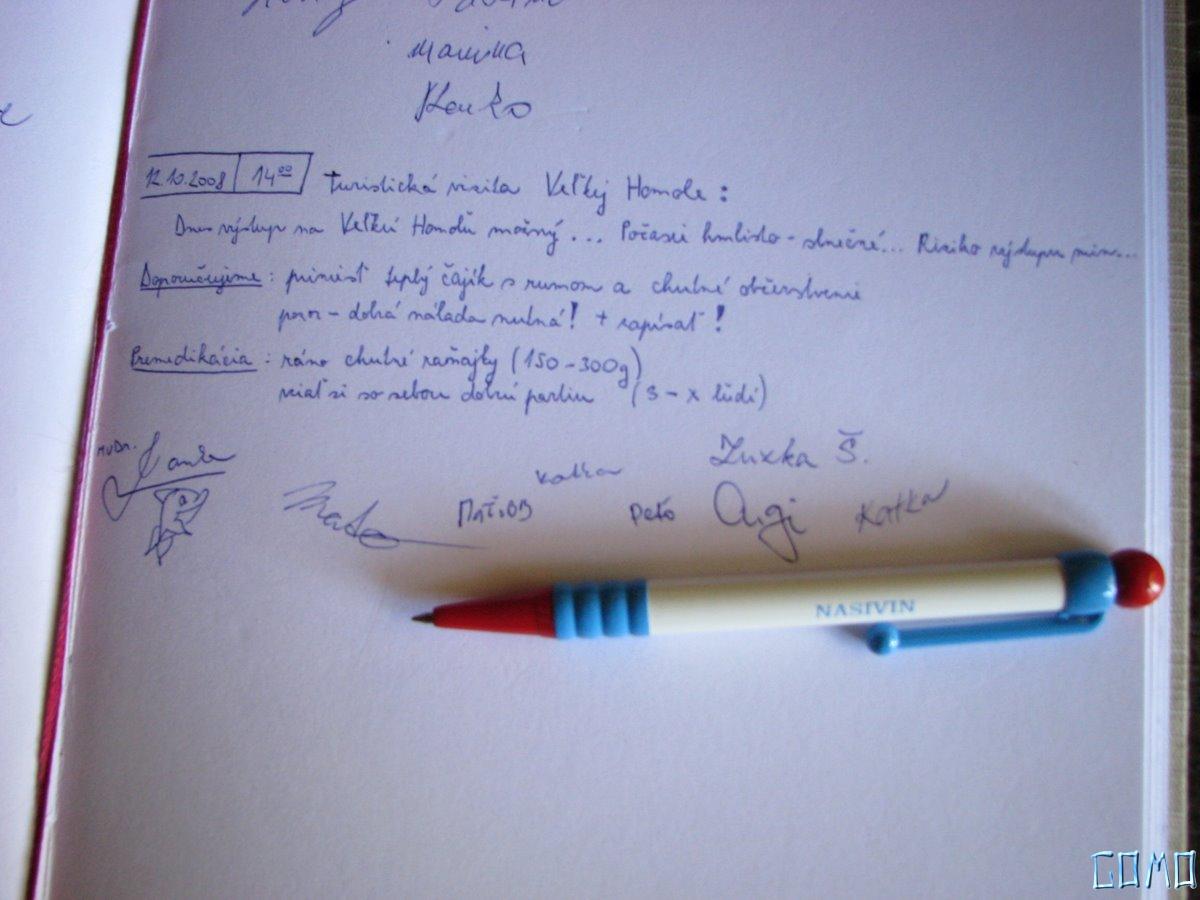 Marinka
12.10.2008 14⁰⁰ Turistická vizita Veľkej Homole:
Dnes výstup na Veľkú Homolu možný... Počasie hmlisto-slnečné... Riziko výstupu min...
Doporučujeme: priniesť teplý čajík s rumom a chutné občerstvenie
pozn - dobrá nálada nutná! + zapísať!
Premedikácia: ráno chutné raňajky (150-300g)
vziať si so sebou dobrú partiu (3-x ľudí)
MUDr.
Katka Zuzka Š.
Maťo Peťo Augi Katka
NASIVIN
GOMO